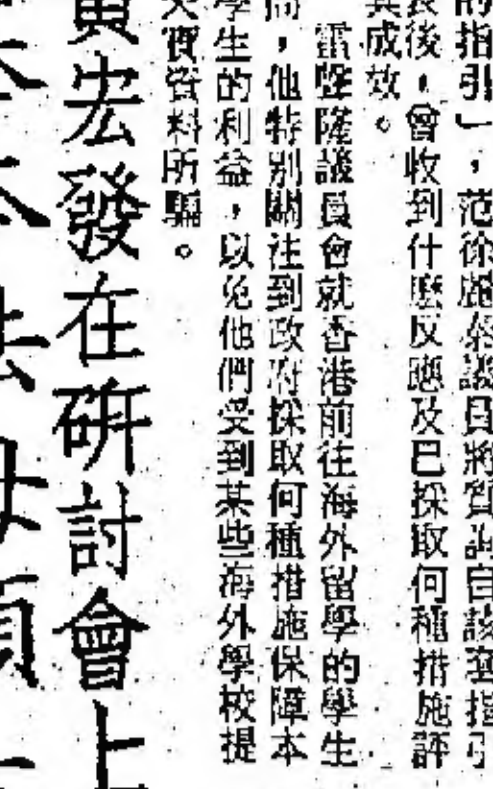 的指引」，范徐麗泰議員將質詢自該套指引
表後，曾收到什麼反應及已採取何種措施評
其成效。
雷聲隆議員會就香港前往海外留學的學生
問，他特別關注到政府採取何種措施保障本
學生的利益，以免他們受到某些海外學校提
失實資料所騙。
黃宏發在研討會上